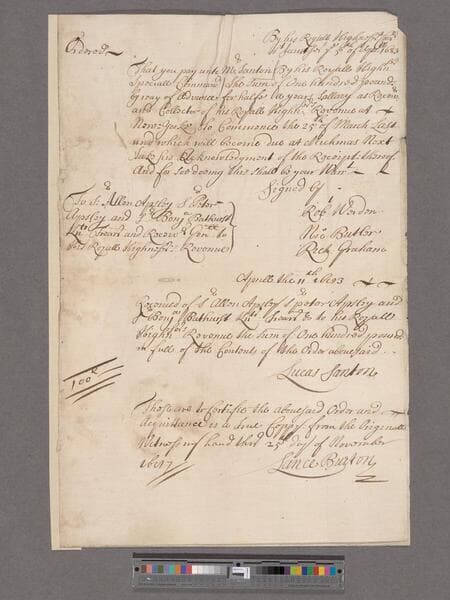 By his Royall Highness
St James's ye 9th of Apll 1683
Ordered
That you pay unto Mr Santon (By his Royall Highns
Speciall Command) The Sum of One Hundred pounds
by way of Advance for halfe a years Sallary as Receivr
and Collector of his Royall Highns Revenue at
New-Yorke to Commence the 25th of March Last
and which will become due at Michmas Next
And for soe doeing this shall be your Warrt
Signed by
To Sr Allen Apsley Sr Peter
Apsley and Sr Benj Bathurst
Robt Worden
Treasr and Receivr Genll
Noo Butter
his Royall Highness Revenue
Rich Graham
Aprill the 11th 1683
Received of Sr Allen Apsley Sr peter Apsley and
Sr Benj Bathurst Treasr &c to his Royall
Highns Revenue the Sum of One hundred pounds
in full of the Contents of the Order abovesaid
Lucas Santon
100l
These are to certifie the abovesaid Order and
Acquittance is a true Coppy from the Originall
Witness my hand this 25th day of November
1687
Lance Burton